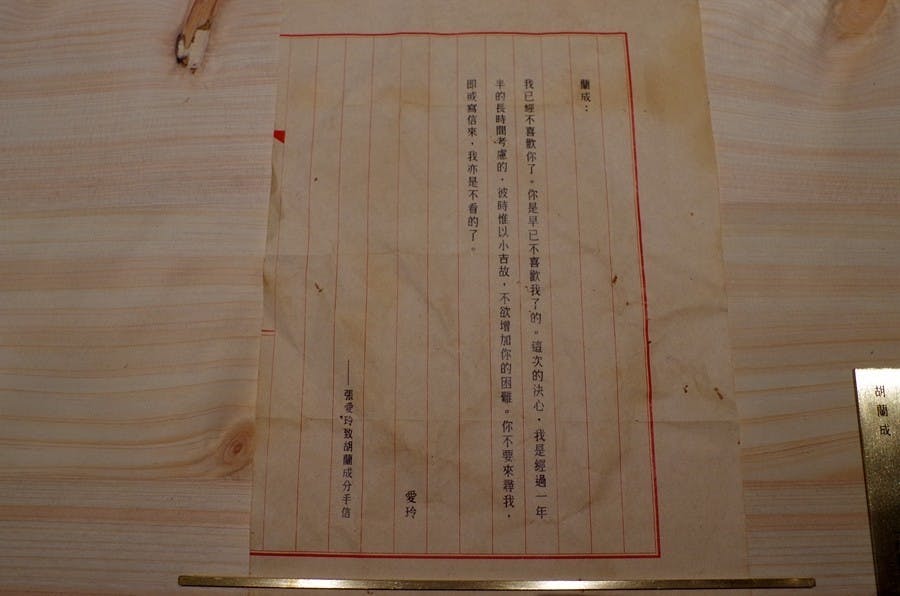 蘭成：
我已經不喜歡你了。你是早已不喜歡我了的。這次的決心，我是經過一年
半的長時間考慮的，彼時惟以小吉故，不欲增加你的困難。你不要來尋我，
即或寫信來，我亦是不看的了。
愛玲
——張愛玲致胡蘭成分手信
胡蘭成